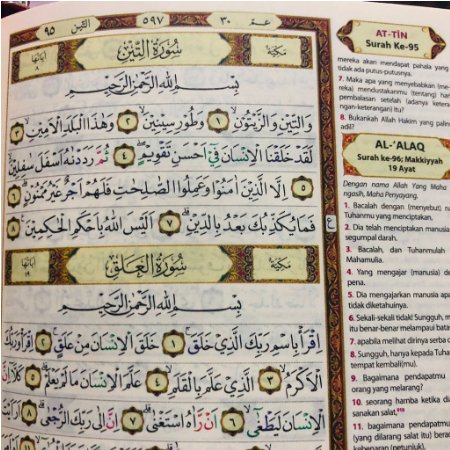 عم ٣٠
٥٩٧
التين ٩٥
مكية
سورة التين
آياتها ٨
بسم الله الرحمن الرحيم
والتين والزيتون ١ وطور سينين ٢ وهذا البلد الامين ٣
لقد خلقنا الانسان في احسن تقويم ٤ ثم رددنه اسفل سفلين
٥ الا الذين امنوا وعملوا الصلحت فلهم اجر غير ممنون ٦
فما يكذبك بعد بالدين ٧ اليس الله باحكم الحكمين ٨
ع
مكية
سورة العلق
آياتها ١٩
بسم الله الرحمن الرحيم
اقرأ باسم ربك الذي خلق ١ خلق الانسان من علق ٢ اقرأ وربك
الاكرم ٣ الذي علم بالقلم ٤ علم الانسان ما لم يعلم ٥ كلا ان
الانسان ليطغى ٦ ان راه استغنى ٧ ان الى ربك الرجعى ٨ ارايت
AT-TĪN
Surah Ke-95
mereka akan mendapat pahala yang
tidak ada putus-putusnya.
7. Maka apa yang menyebabkan (me-
reka) mendustakanmu (tentang) hari
pembalasan setelah (adanya
ngan-keterangan) itu?
8. Bukankah Allah Hakim yang paling
adil?
AL-'ALAQ
Surah ke-96; Makkiyyah
19 Ayat
Dengan nama Allah Yang Maha
ngasih, Maha Penyayang.
1. Bacalah dengan (menyebut)
Tuhanmu yang menciptakan,
2. Dia telah menciptakan manusia
segumpal darah.
3. Bacalah, dan Tuhanmulah
Mahamulia.
4. Yang mengajar (manusia)
pena.
5. Dia mengajarkan manusia
tidak diketahuinya.
6. Sekali-kali tidak! Sungguh,
itu benar-benar melampaui batas
7. apabila melihat dirinya serba
8. Sungguh, hanya kepada
tempat kembali(mu).
9. Bagaimana pendapatmu
orang yang melarang?
10. seorang hamba ketika
sanakan salat,
11. bagaimana pendapatmu
(yang dilarang salat itu)
kebenaran (petunjuk),